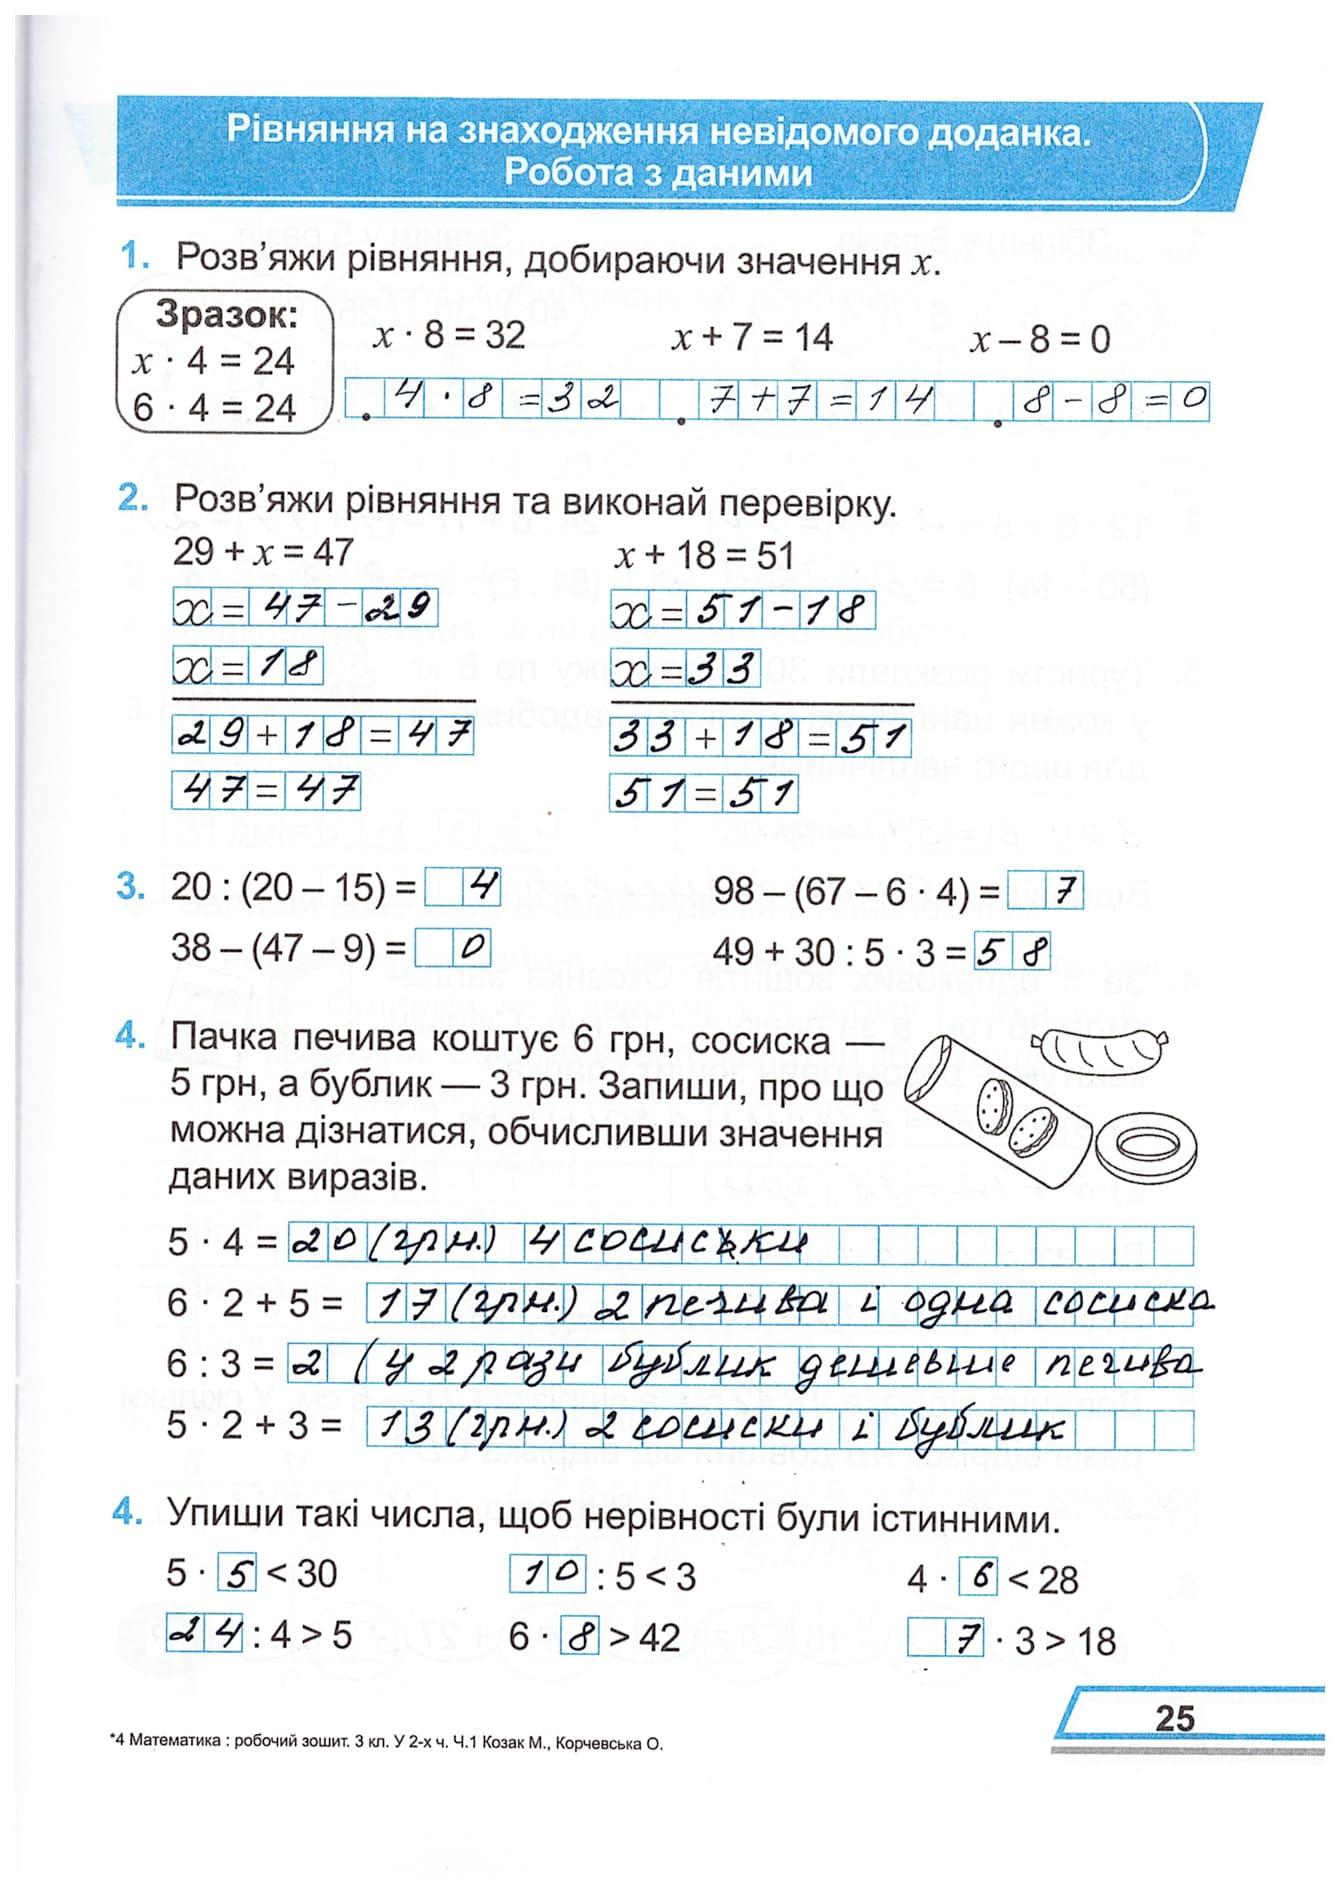 Рівняння на знаходження невідомого доданка.
Робота з даними
1. Розв’яжи рівняння, добираючи значення x.
Зразок:
x · 4 = 24
6 · 4 = 24
x · 8 = 32 x + 7 = 14 x – 8 = 0
4 · 8 = 32 7 + 7 = 14 8 - 8 = 0
2. Розв’яжи рівняння та виконай перевірку.
29 + x = 47 x + 18 = 51
x = 47 - 29 x = 51 - 18
x = 18 x = 33
29 + 18 = 47 33 + 18 = 51
47 = 47 51 = 51
3. 20 : (20 – 15) = 4 98 – (67 – 6 · 4) = 7
38 – (47 – 9) = 0 49 + 30 : 5 · 3 = 58
4. Пачка печива коштує 6 грн, сосиска —
5 грн, а бублик — 3 грн. Запиши, про що
можна дізнатися, обчисливши значення
даних виразів.
5 · 4 = 20 (грн.) 4 сосиськи
6 · 2 + 5 = 17 (грн.) 2 печива і одна сосиска
6 : 3 = 2 ( у 2 рази бублик дешевше печива
5 · 2 + 3 = 13 (грн.) 2 сосиски і бублик
4. Упиши такі числа, щоб нерівності були істинними.
5 · 5 < 30 10 : 5 < 3 4 · 6 < 28
24 : 4 > 5 6 · 8 > 42 7 · 3 > 18
25
*4 Математика : робочий зошит. 3 кл. У 2-х ч. Ч.1 Козак М., Корчевська О.